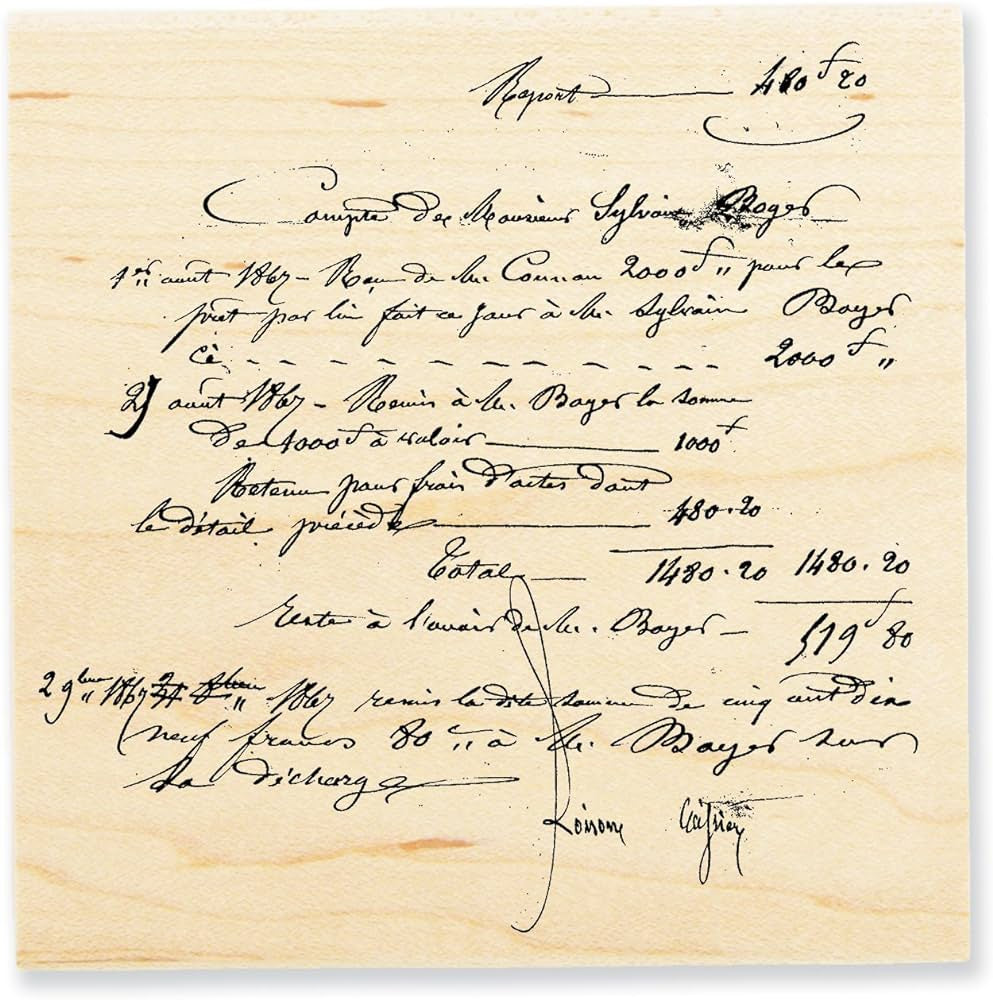 Report 480 f 20
Compte de Monsieur Sylvain Boyer
1er août 1867 - Reçu de M. Connan 2000 f " pour le
prêt par lui fait ce jour à M. Sylvain Boyer
Ci 2000 f "
août 1867 - Remis à M. Boyer la somme
De 1000 f à valoir 1000 f
Retenu pour frais d'actes dont
le détail précède 480.20
Total 1480.20 1480.20
reste à l'avoir de M. Boyer - 519 f 80
2 9bre 1867 1867 remis la dite somme de cinq cent dix
neuf francs 80 c à M. Boyer sur
sa décharge